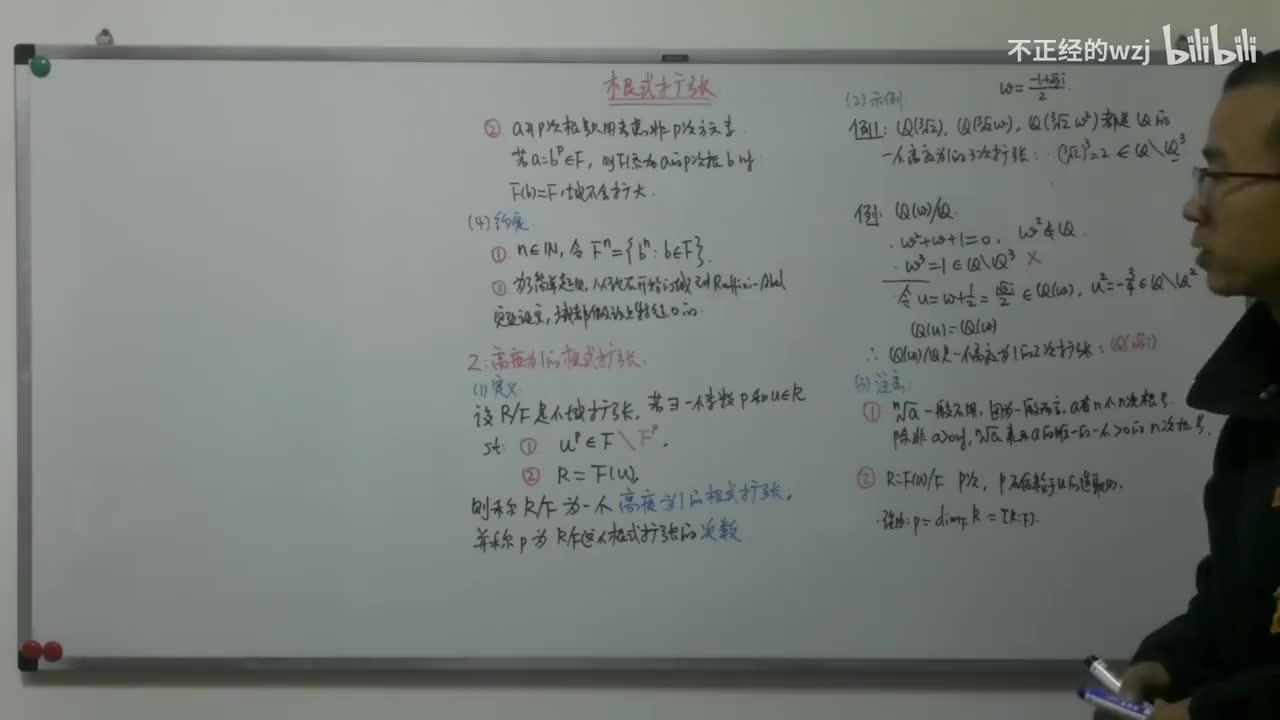 不正经的wzj bilibili
根式扩张
② a开p次根号只用考虑非p次方元素.
若a=b^p∈F, 则F添加a的p次根b时
F(b)=F, 域不会扩大.
(4) 约定
① n∈ℕ, 令 F^n={b^n : b∈F}.
② 为了简单起见, 从现在开始到 Ruffini-Abel
定理证完, 域都假设是特征0的.
2. 高度为1的根式扩张.
(1) 定义
设 R/F 是个域扩张, 若∃一个素数p和u∈R
st: ① u^p∈F\F^p,
② R=F(u),
则称R/F为一个高度为1的根式扩张,
并称p为R/F这个根式扩张的次数
(2) 示例
ω=(-1+√3i)/2.
例1: Q(∛2), Q(∛2ω), Q(∛2ω²)都是Q的
一个高度为1的3次扩张: (∛2)³=2∈Q\Q³
例: Q(ω)/Q.
·ω²+ω+1=0, ω²∉Q.
·ω³=1∈Q\Q³ ×
令u=ω+1/2=√3i/2∈Q(ω), u²=-3/4∈Q\Q²
Q(u)=Q(ω)
∴ Q(ω)/Q是一个高度为1的2次扩张: Q(√3i)
(3) 注意:
① ⁿ√a 一般不用, 因为一般而言, a有n个n次根号.
除非a>0时, ⁿ√a表示a的唯一的一个>0的n次根号.
② R=F(u)/F p次, p不依赖于u的选取的.
p=dim_F R=[R:F].